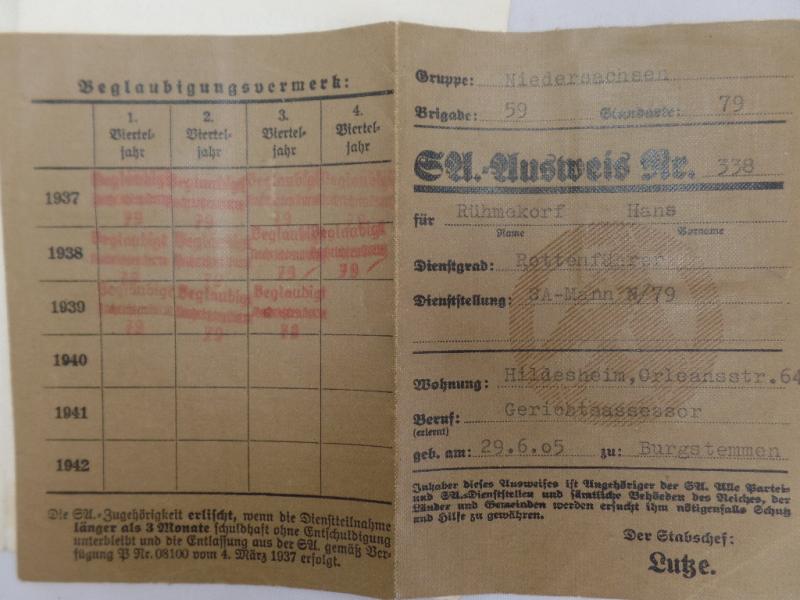 Beglaubigungsvermerk:
1. Viertel- jahr
2. Viertel- jahr
3. Viertel- jahr
4. Viertel- jahr
1937
Beglaubigt
79
Beglaubigt
79
Beglaubigt
79
Beglaubigt
1938
Beglaubigt
79
Beglaubigt
79
Beglaubigt
79
Beglaubigt
79
1939
Beglaubigt
79
Beglaubigt
79
Beglaubigt
79
1940
1941
1942
Die SA.-Zugehörigkeit erlischt, wenn die Dienstteilnahme
länger als 3 Monate schuldhaft ohne Entschuldigung
unterbleibt und die Entlassung aus der SA. gemäß Ver-
fügung P Nr. 08100 vom 4. März 1937 erfolgt.
Gruppe: Niedersachsen
Brigade: 59 Standarte: 79
SA.-Ausweis Nr. 338
für Rühmekorf Hans
Name Vorname
Dienstgrad: Rottenführer
Dienststellung: SA-Mann N/79
Wohnung: Hildesheim,Orleansstr.64
Beruf: Gerichtsassessor
(erlernt)
geb. am: 29.6.05 zu: Burgstemmen
Inhaber dieses Ausweises ist Angehöriger der SA. Alle Partei-
und SA.-Dienststellen und sämtliche Behörden des Reiches, der
Länder und Gemeinden werden ersucht ihm nötigenfalls Schutz
und Hilfe zu gewähren.
Der Stabschef:
Lutze.